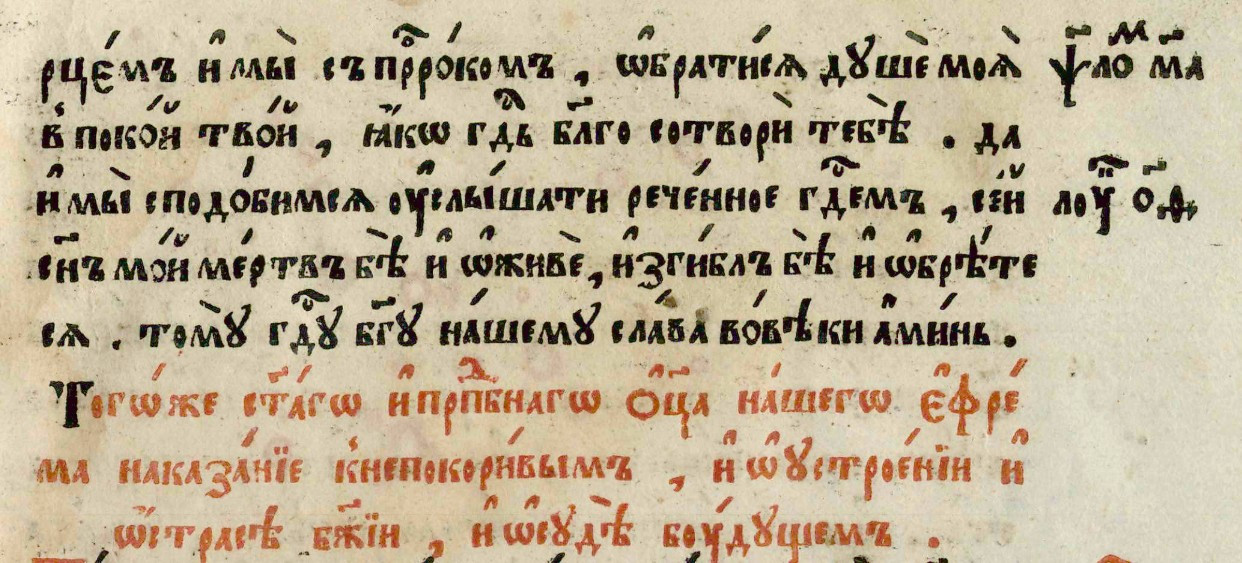 рце́мъ и҆ мы̀ съ прⷪ҇ро́комъ, ѡ҆брати́сѧ дꙋшѐ моѧ̀ ѱло́ⷨ м҃а
в̾ поко́й тво́й, ꙗ҆́кѡ гдⷭ҇ь бл҃го сотворѝ тебѣ̀. да
и҆ мы̀ сподо́бимсѧ оу҆слы́шати рече́нное гдⷭ҇емъ, се́й лоу́ⷦ҇ ѻ҃ѳ
сн҃ъ мо́й ме́ртвъ бѣ̀ и҆ ѡ҆живѐ, и҆зги́блъ бѣ̀ и҆ ѡ҆брѣ́те
сѧ. томꙋ̀ гдⷭ҇ꙋ бг҃ꙋ на́шемꙋ сла́ва во́вѣки а҆ми́нь.
Тогѡ́же ст҃а́гѡ и҆ прпⷣбнагѡ ѻ҆ц҃а на́шегѡ є҆фре́
ма наказа́нїе к̾непокори́вымъ, и҆ ѡ҆ ꙋ҆строе́нїи и҆
ѡ҆ стра́сѣ бж҃їи, и҆ ѡ҆ сꙋдѣ̀ боу́дꙋщемъ.